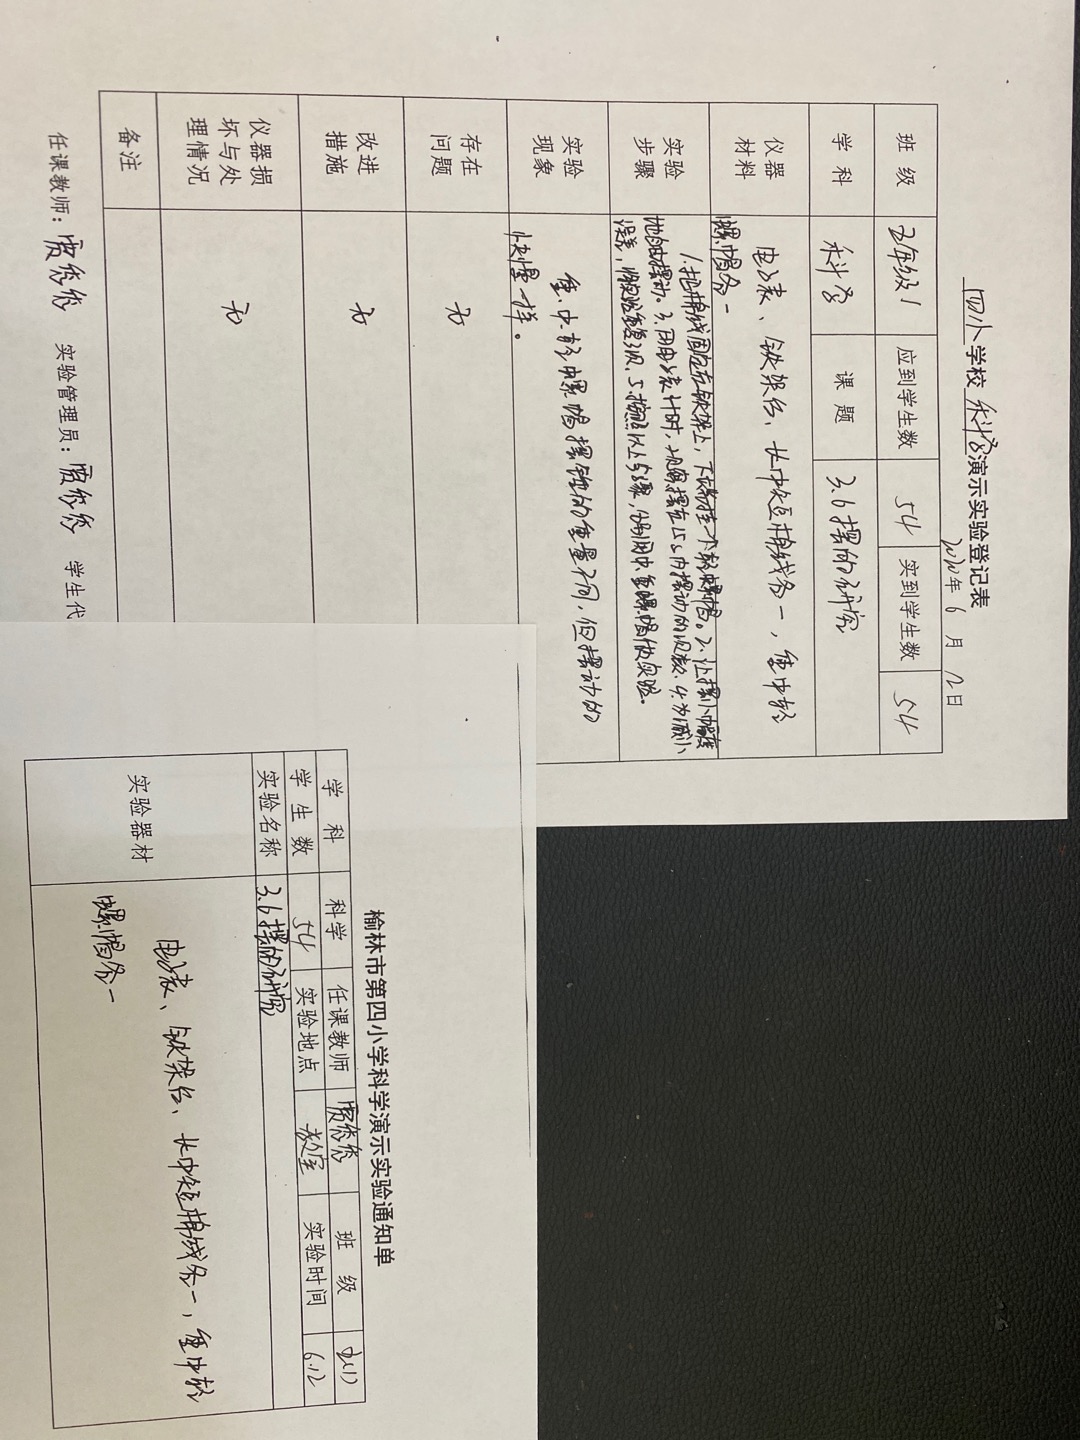 四小学校科学演示实验登记表
年6月12日
班级 五年级1 应到学生数 54 实到学生数 54
学科 科学 课题 3.6摆的研究
仪器材料 电子表、铁架台、长中短棉线各一,重中轻
螺帽各一
实验步骤 1.把棉线固定在铁架上,下端挂一个轻螺帽。2.让摆小幅度
地自由摆动。3.用电子表计时,观察摆在15s内摆动的次数.4.为减小
误差,将实验重复3次.5.按照以上步骤,分别用中.重螺帽做实验。
实验现象 重.中.轻螺帽摆锤的重量不同,但摆动的
快慢一样。
存在问题 无
改进措施 无
仪器损坏与处理情况 无
备注
任课教师: 实验管理员: 学生代
榆林市第四小学科学演示实验通知单
学科 科学 任课教师 班级 五(1)
学生数 54 实验地点 教室 实验时间 6.12
实验名称 3.6摆的研究
实验器材 电子表、铁架台、长中短棉线各一,重中轻
螺帽各一